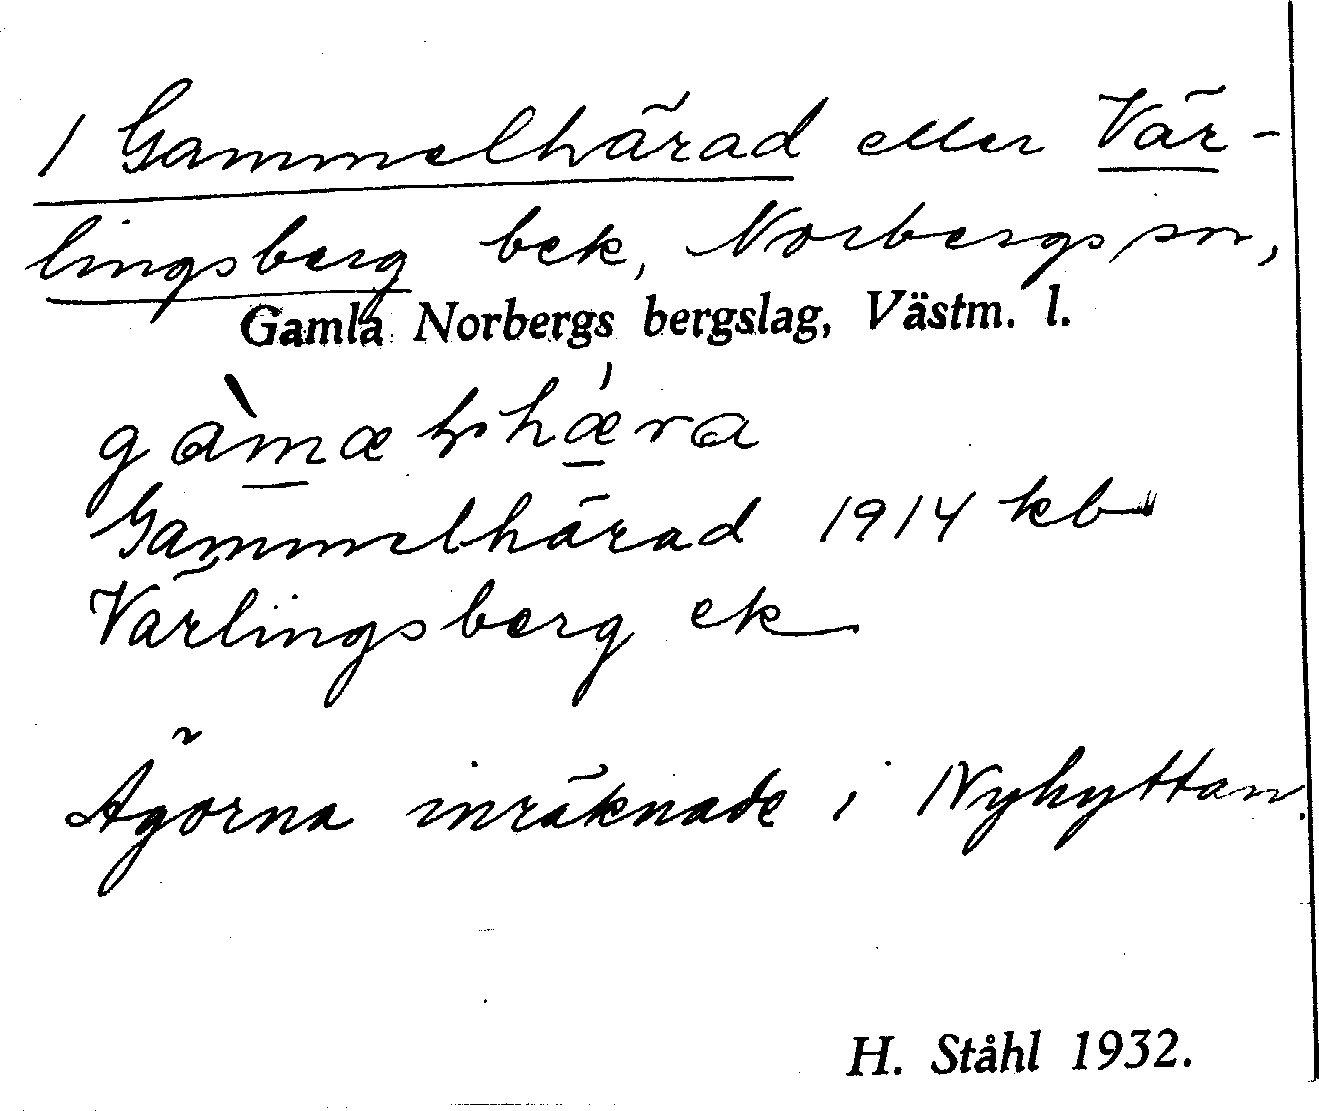 1 Gammelhärad eller Vär-
lingsberg bek, Norbergs sn,
Gamla Norbergs bergslag, Västm. l.
Gammelhärad 1914 kb
Värlingsberg ek
Ägorna inräknade i Nyhyttan.
H. Ståhl 1932.